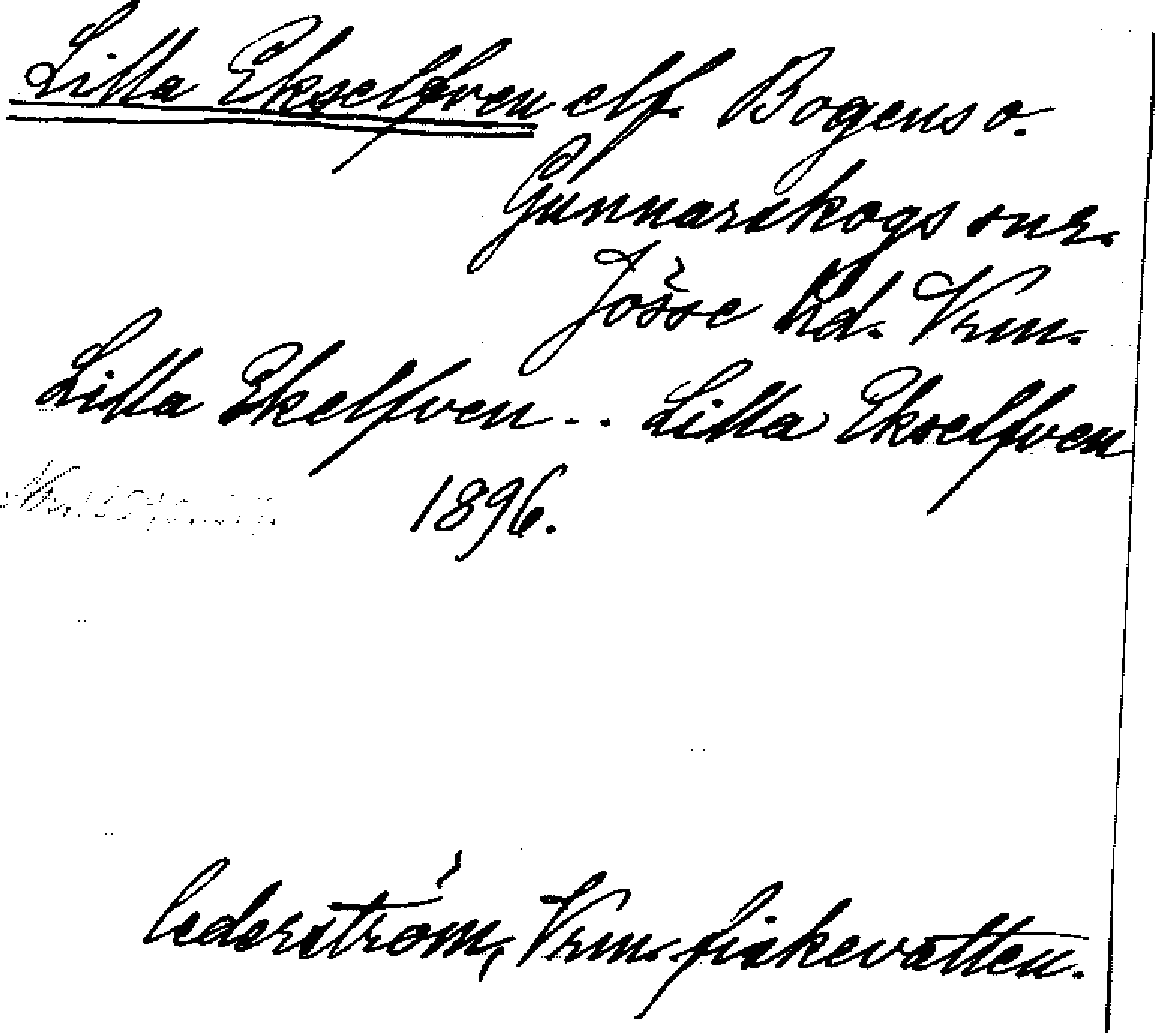 Lilla Ekselfven elf. Bogens o.
Gunnarskogs snr.
Jösse hd. Vrm.
Lilla Ekelfven .. Lilla Ekselfven
1896.
Cederström, Vrm. fiskevatten.